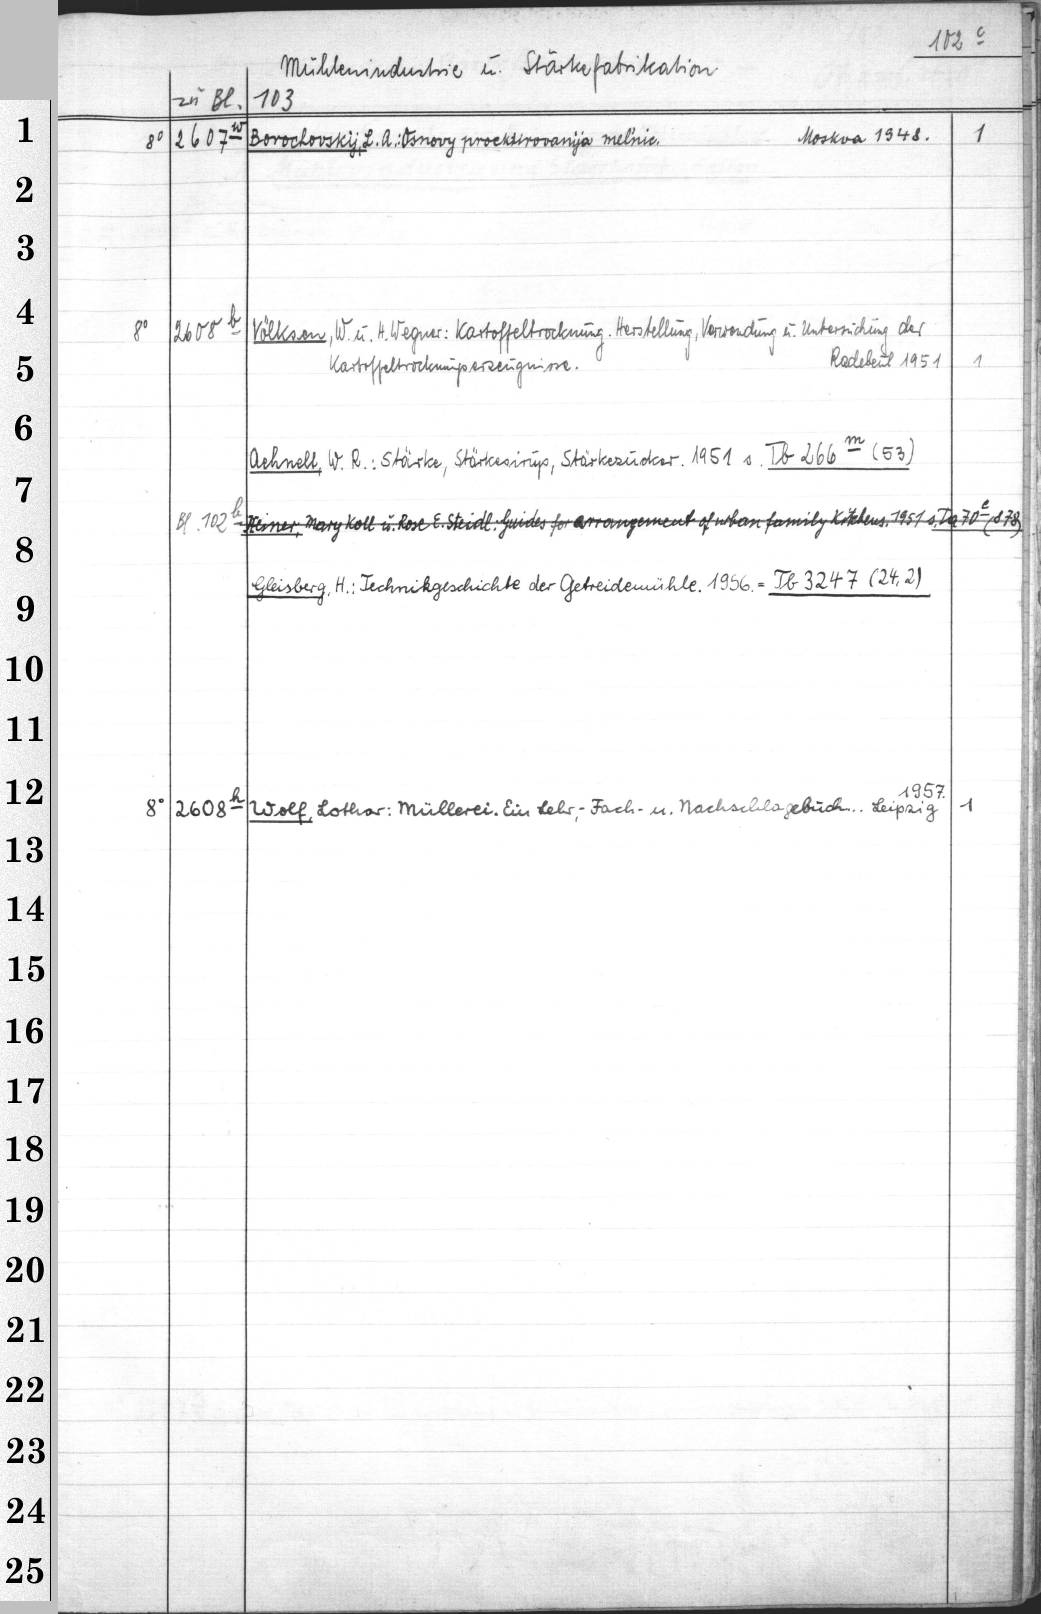 102 c
Mühlenindustrie u. Stärkefabrikation
zu Bl. 103
1
8° 2607 w Borochovskij, L. A.: Osnovy proektirovanija mel'nic. Moskva 1948. 1
2
3
4
8° 2608 b Völksen, W. u. H. Wegner: Kartoffeltrocknung. Herstellung, Verwendung u. Untersuchung der
5
Kartoffeltrocknungserzeugnisse. Radebeul 1951 1
6
Aehnelt, W. R.: Stärke, Stärkesirup, Stärkezucker. 1951 s. Tb 266 m (53)
7
Bl. 102 b Heiner, Mary Koll u. Rose E. Steidl: Guides for arrangement of urban family Kitchens. 1951 s. Ta 70 c (878)
8
Gleisberg, H.: Technikgeschichte der Getreidemühle. 1956. = Tb 3247 (24,2)
9
10
11
12
8° 2608 h Wolf, Lothar: Müllerei. Ein Lehr,- Fach- u. Nachschlagebuch.. Leipzig 1957. 1
13
14
15
16
17
18
19
20
21
22
23
24
25